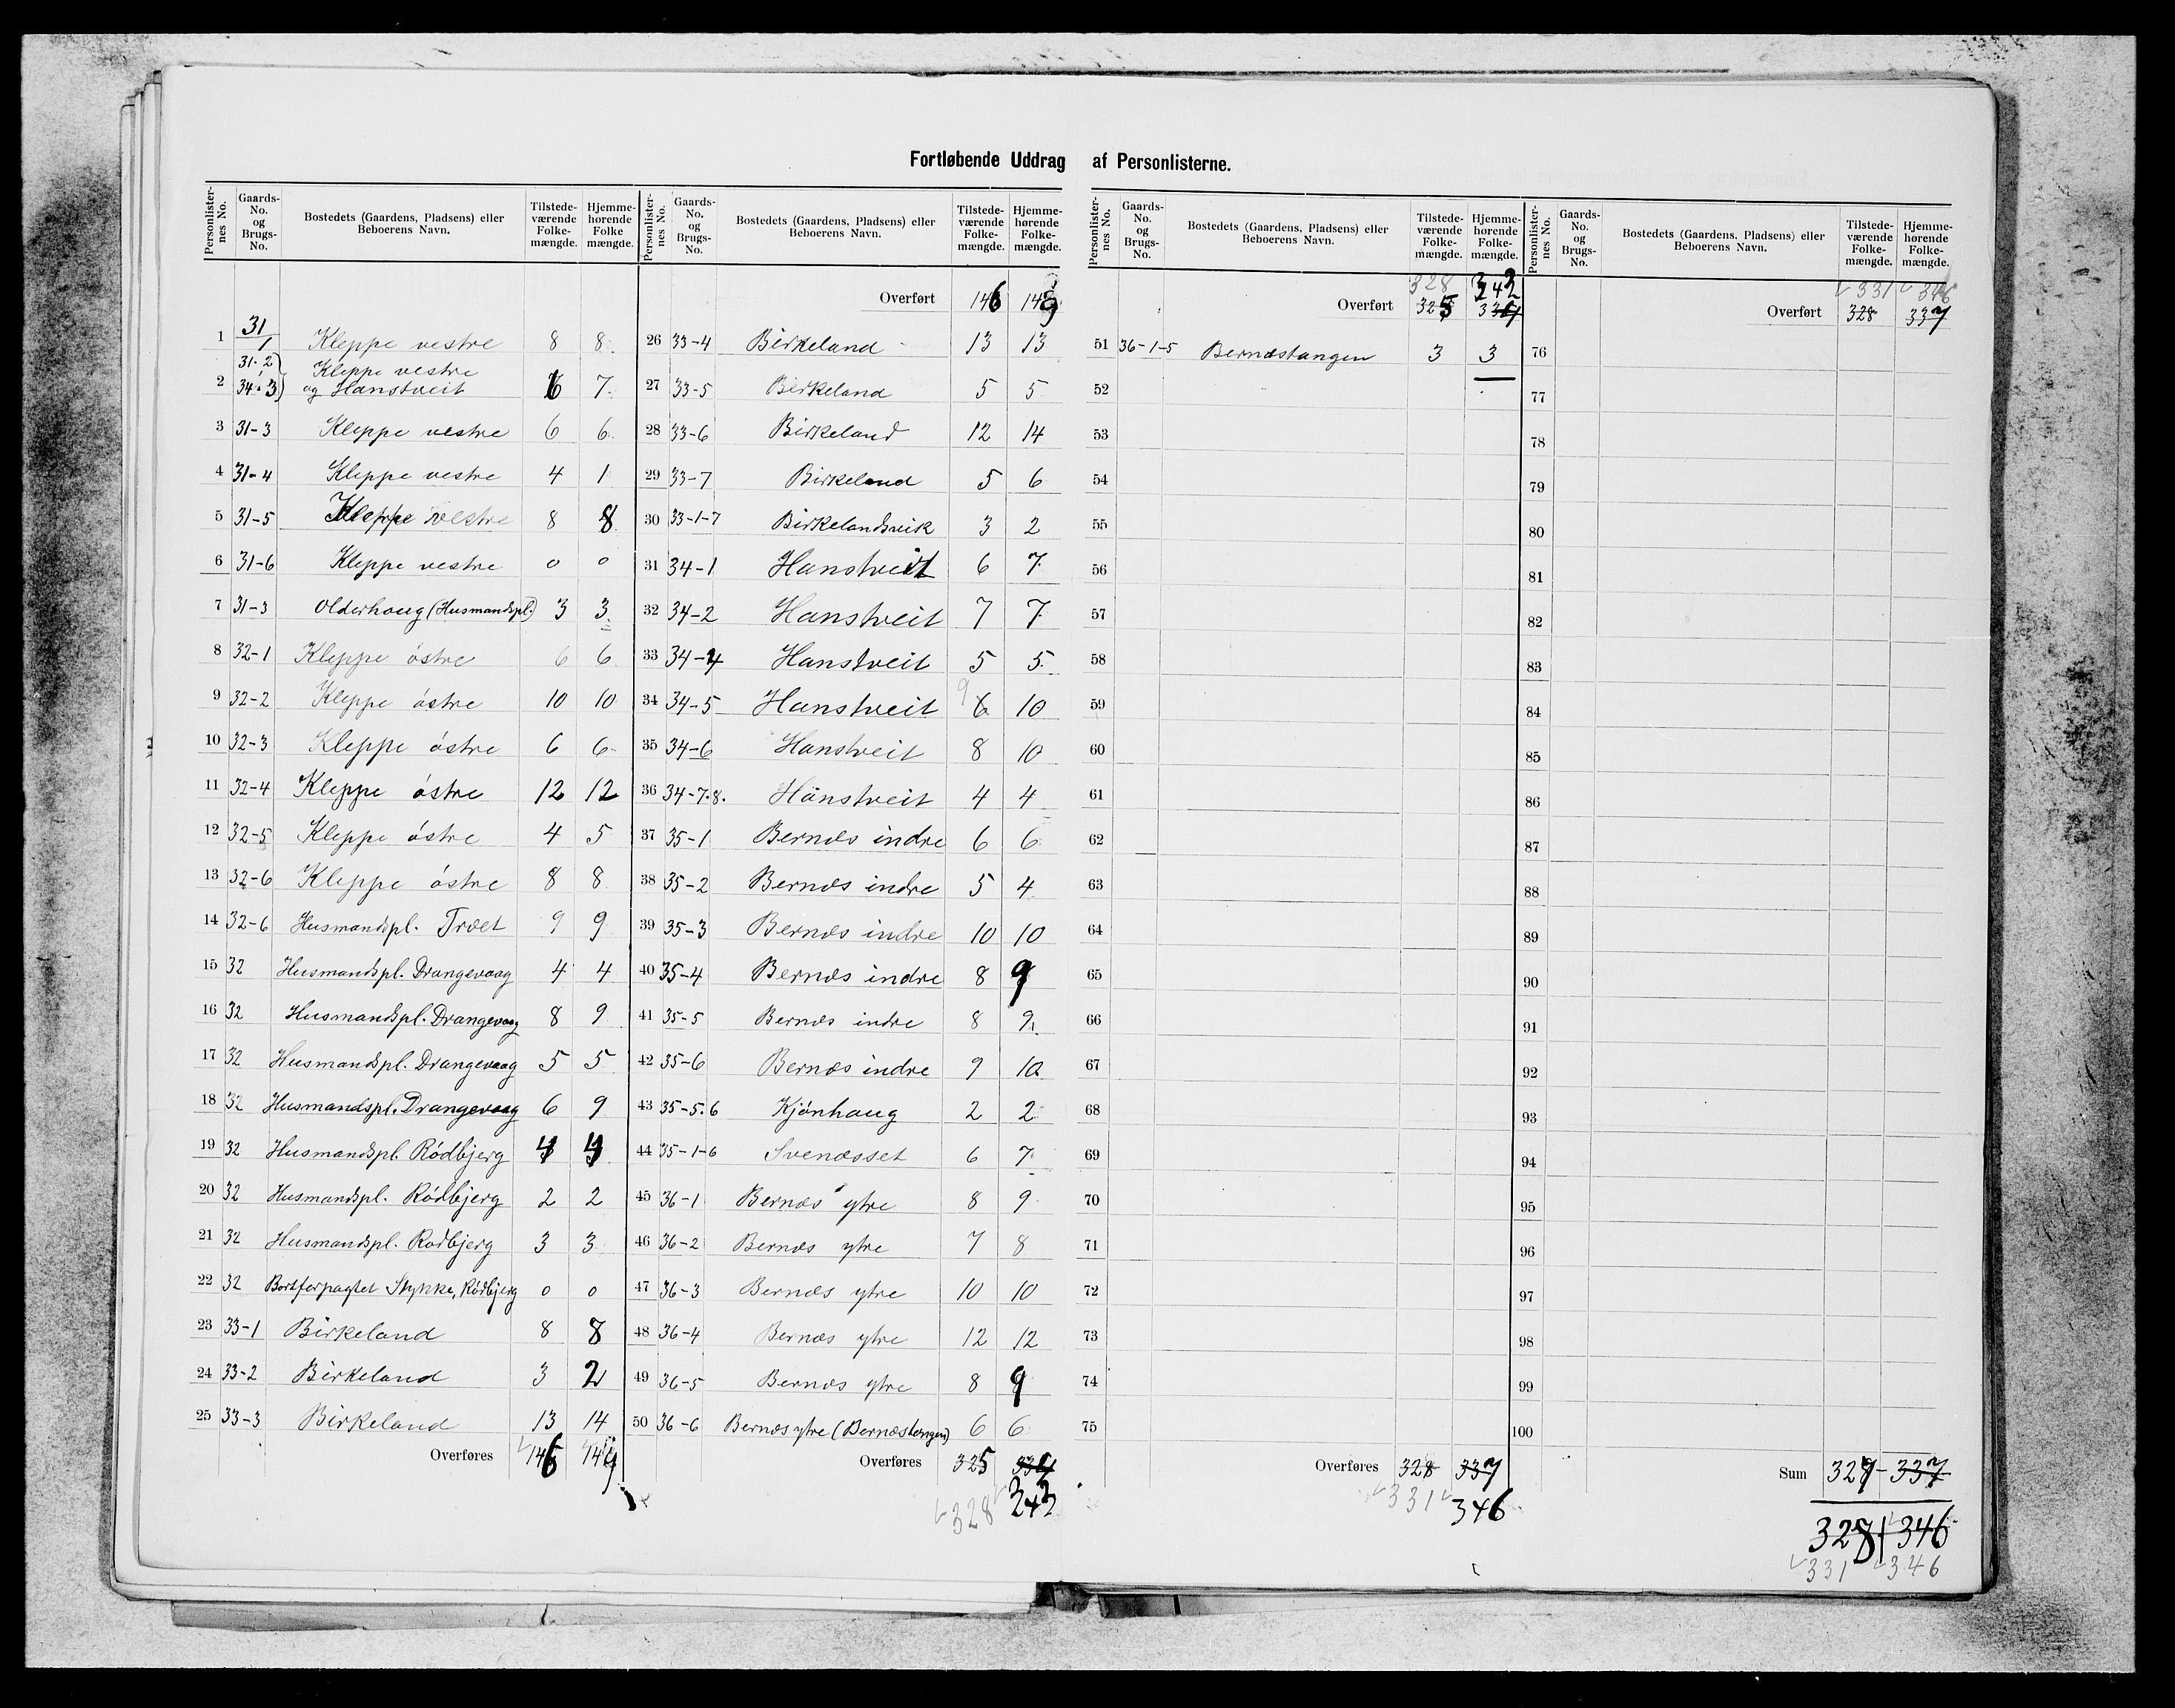 Fortløbende Uddrag af Personlisterne.
Personlister-nes No. | Gaards-No. og Brugs-No. | Bostedets (Gaardens, Pladsens) eller Beboerens Navn. | Tilstede-værende Folke-mængde. | Hjemme-hørende Folke mængde.
1 31/1 Kleppe vestre 8 8
2 31·2 34·3 Kleppe vestre og Hanstveit 6 7
3 31-3 Kleppe vestre 6 6
4 31-4 Kleppe vestre 4 1
5 31-5 Kleppe vestre 8 8
6 31-6 Kleppe vestre 0 0
7 31-3 Olderhaug (Husmandspl.) 3 3
8 32-1 Kleppe östre 6 6
9 32-2 Kleppe östre 10 10
10 32-3 Kleppe östre 6 6
11 32-4 Kleppe östre 12 12
12 32-5 Kleppe östre 4 5
13 32-6 Kleppe östre 8 8
14 32-6 Husmandspl. Træet 9 9
15 32 Husmandspl. Drangevaag 4 4
16 32 Husmandspl. Drangevaag 8 9
17 32 Husmandspl. Drangevaag 5 5
18 32 Husmandspl. Drangevaag 6 9
19 32 Husmandspl. Rödbjerg 4 4
20 32 Husmandspl. Rödbjerg 2 2
21 32 Husmandspl. Rödbjerg 3 3
22 32 Bortforpagtet Stykke, Rödbjerg 0 0
23 33-1 Birkeland 8 8
24 33-2 Birkeland 3 2
25 33-3 Birkeland 13 14
Overføres 146 149
Personlister-nes No. | Gaards-No. og Brugs-No. | Bostedets (Gaardens, Pladsens) eller Beboerens Navn. | Tilstede-værende Folke-mængde. | Hjemme-hørende Folke-mængde.
Overført 146 149
26 33-4 Birkeland 13 13
27 33-5 Birkeland 5 5
28 33-6 Birkeland 12 14
29 33-7 Birkeland 5 6
30 33-1-7 Birkelandsvik 3 2
31 34-1 Hanstveit 6 7
32 34-2 Hanstveit 7 7
33 34-4 Hanstveit 5 5
34 34-5 Hanstveit 6 9 10
35 34-6 Hanstveit 8 10
36 34-7·8. Hanstveit 4 4
37 35-1 Bernæs indre 6 6
38 35-2 Bernæs indre 5 4
39 35-3 Bernæs indre 10 10
40 35-4 Bernæs indre 8 9
41 35-5 Bernæs indre 8 9
42 35-6 Bernæs indre 9 10
43 35-5·6 Kjönhaug 2 2
44 35-1-6 Svenæsset 6 7
45 36-1 Bernæs ytre 8 9
46 36-2 Bernæs ytre 7 8
47 36-3 Bernæs ytre 10 10
48 36-4 Bernæs ytre 12 12
49 36-5 Bernæs ytre 8 9
50 36-6 Bernæs ytre (Bernæstangen) 6 6
Overføres 325
328 343
Personlister-nes No. | Gaards-No. og Brugs-No. | Bostedets (Gaardens, Pladsens) eller Beboerens Navn. | Tilstede-værende Folke-mængde. | Hjemme-hørende Folke-mængde.
328
Overført 325
51 36-1-5 Bernæstangen 3 3
52
53
54
55
56
57
58
59
60
61
62
63
64
65
66
67
68
69
70
71
72
73
74
75
Overføres 328 337
331 346
Personlister-nes No. | Gaards-No. og Brugs-No. | Bostedets (Gaardens, Pladsens) eller Beboerens Navn. | Tilstede-værende Folke-mængde. | Hjemme-hørende Folke-mængde.
331 346
Overført 328 337
76
77
78
79
80
81
82
83
84
85
86
87
88
89
90
91
92
93
94
95
96
97
98
99
100
Sum 328 337
328 346
331 346